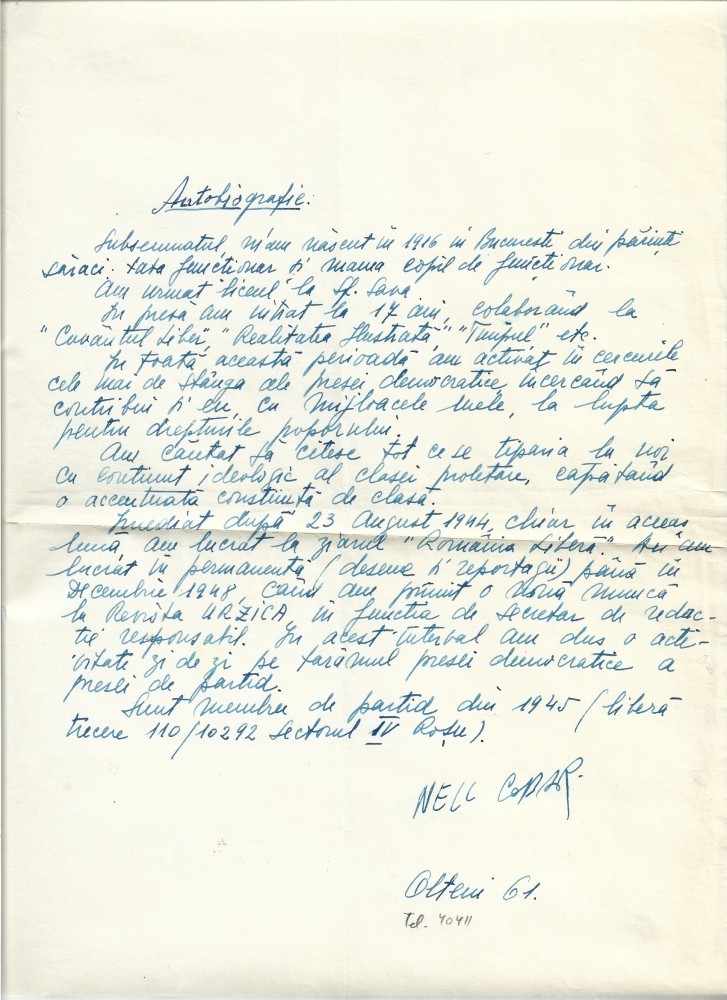 Autobiografie.
Subsemnatul, m'am născut în 1916 în Bucuresti din părinți
săraci: tata funcționar și mama copil de funcționar.
Am urmat liceul la Sf. Sava.
În presă am intrat la 17 ani, colaborând la
"Cuvântul liber", "Realitatea Ilustrată" "Timpul" etc.
În toată această perioadă am activat în cercurile
cele mai de stânga ale presei democratice încercând să
contribui și eu, cu mijloacele mele, la lupta
pentru drepturile poporului.
Am căutat să citesc tot ce se tiparia la noi
cu continut ideologic al clasei proletare, capatând
o accentuată constiință de clasă.
Imediat după 23 August 1944, chiar în aceeas
lună, am lucrat la ziarul "România Liberă". Aci am
lucrat în permanentă (desene și reportagii) până în
Decembrie 1948, când am primit o nouă muncă
la Revista URZICA în functia de secretar de redac-
tie responsabil. In acest interval am dus o acti-
vitate zi de zi pe tarâmul presei democratice a
presei de partid.
Sunt membru de partid din 1945 (liberă
trecere 110/10292 Sectorul IV Roșu).
NELL COBAR.
Olteni 61.
Tel. 40411